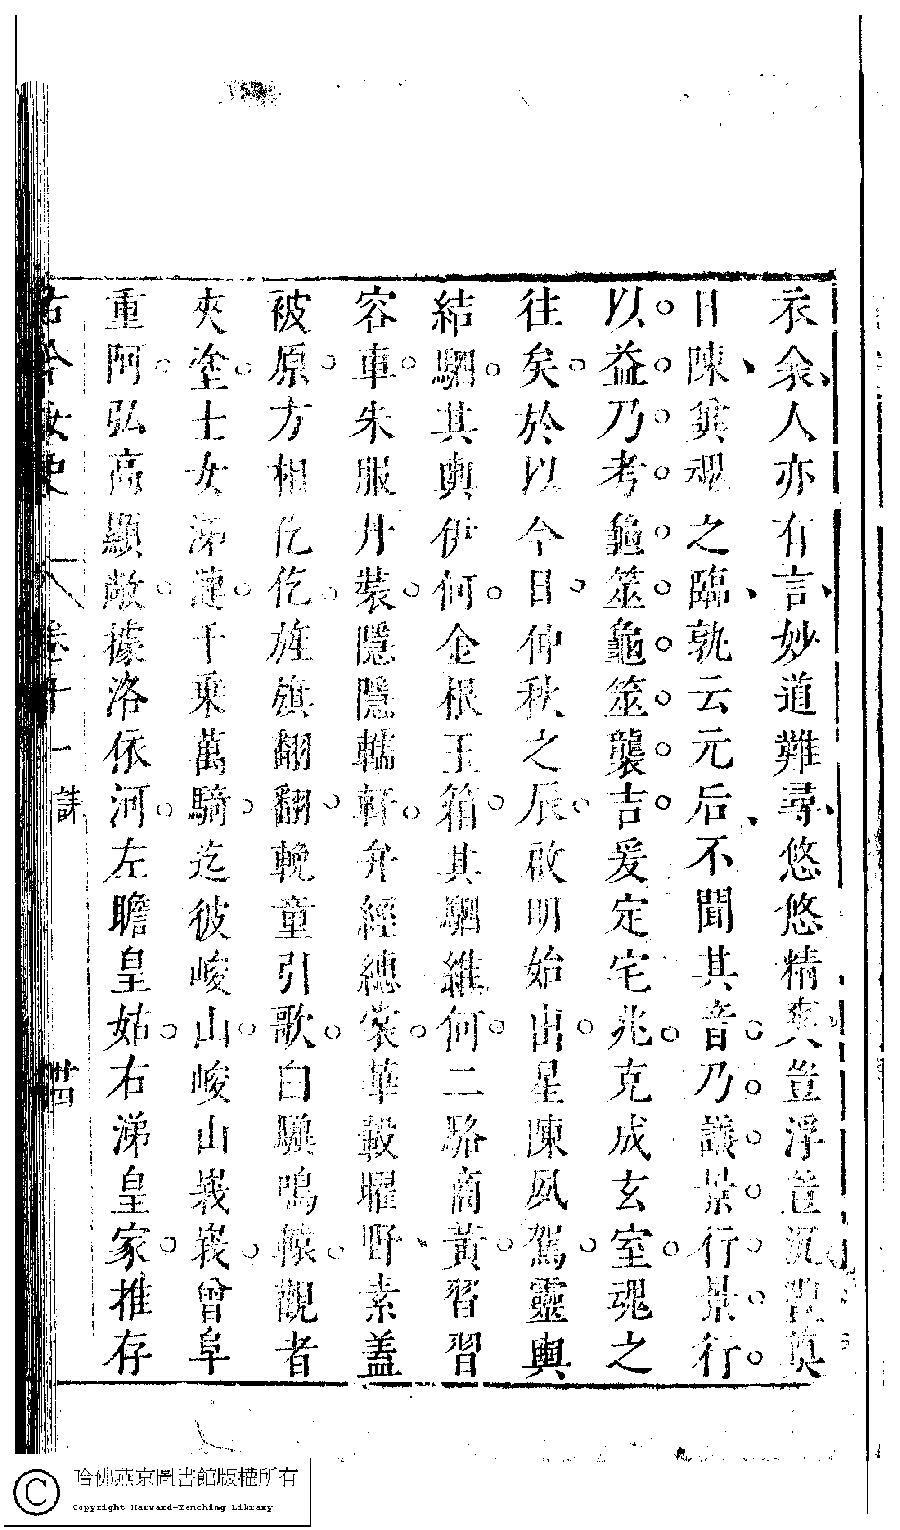 衾人亦有言妙道難尋悠悠精爽豈浮豈沉豐奠
日陳冀魂之臨孰云元后不聞其音乃議景行景行
以益乃考龜筮龜筮襲吉爰定宅兆克成玄室魂之
往矣於以今日仲秋之辰啟明始出星陳夙駕靈輿
結駟其輿伊何金根玉箱其駟維何二駱兩黃習習
容車朱服丹裝隱隱轜軒弁絰繐裳華轂曜野素蓋
被原方相仡仡旌旗翻翻輓童引歌白驥鳴轅觀者
夾塗士女涕漣千乘萬騎迄彼峻山峻山峩峩曾阜
重阿弘高顯敞據洛依河左瞻皇姑右涕皇家推存
古今女史 卷十一 誄 廿四
哈佛燕京圖書館版權所有
Copyright Harvard-Yenching Library